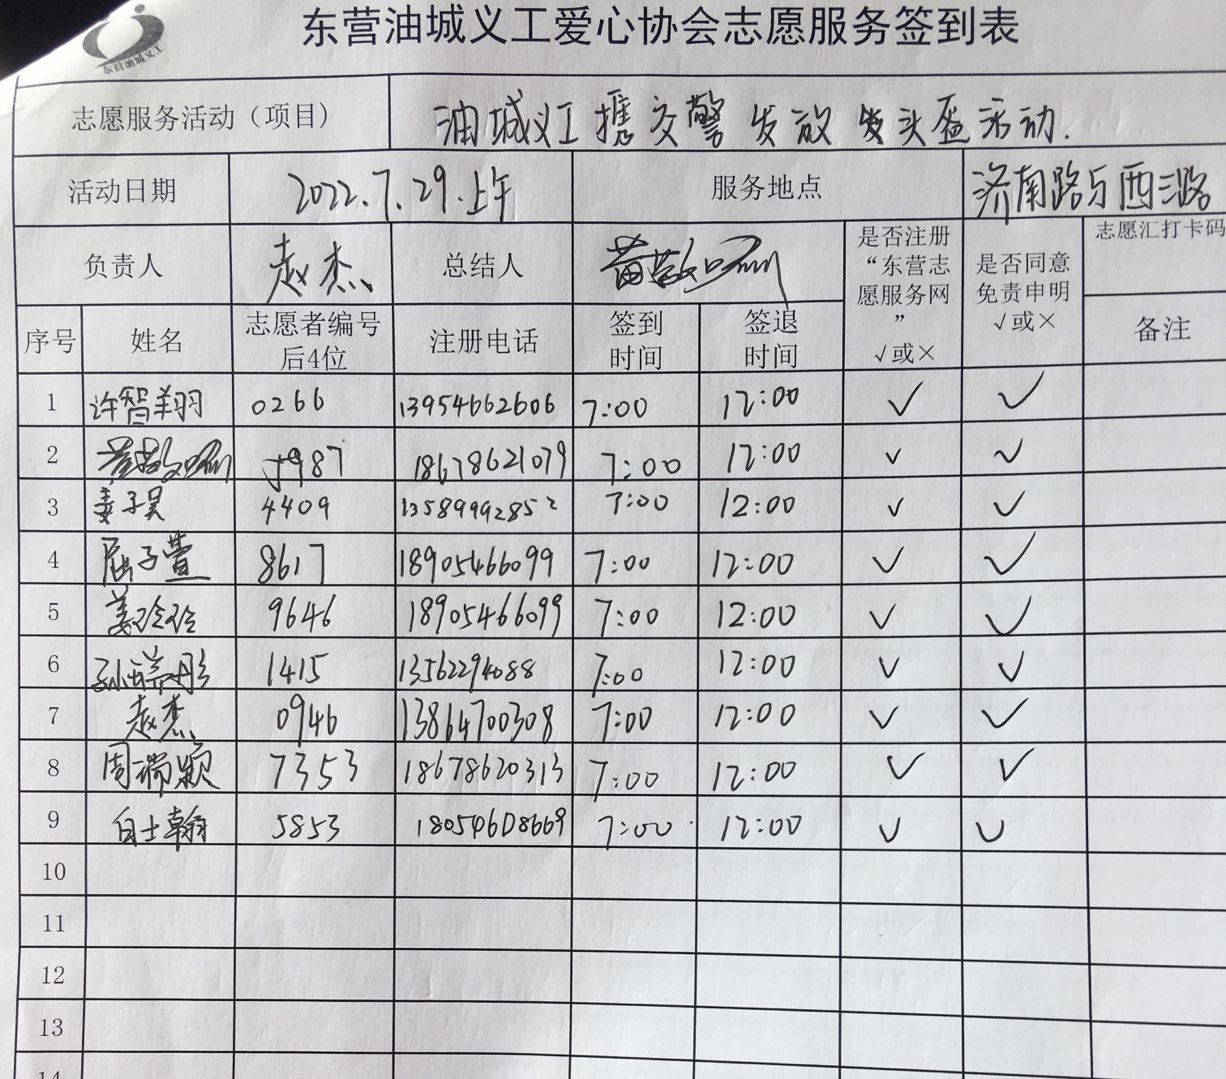 东营油城义工
东营油城义工爱心协会志愿服务签到表
志愿服务活动（项目） 油城义工携交警发放 头盔活动.
活动日期 2022.7.29.上午 服务地点 济南路与西三路
负责人 赵杰 总结人 黄敬 是否注册“东营志愿服务网” √或× 是否同意免责申明 √或× 志愿汇打卡码
序号 姓名 志愿者编号后4位 注册电话 签到时间 签退时间 备注
1 许智翔 0266 13954662606 7:00 12:00 √ √
2 黄敬 987 18678621079 7:00 12:00 √ √
3 姜子昊 4409 13589992852 7:00 12:00 √ √
4 屈子萱 8617 18905466099 7:00 12:00 √ √
5 姜玲玲 9646 18905466099 7:00 12:00 √ √
6 孙瑞彤 1415 13562294088 7:00 12:00 √ √
7 赵杰 0946 13864700308 7:00 12:00 √ √
8 周瑞颖 7353 18678620313 7:00 12:00 √ √
9 白士翰 5853 18054608669 7:00 12:00 √ √
10
11
12
13
14